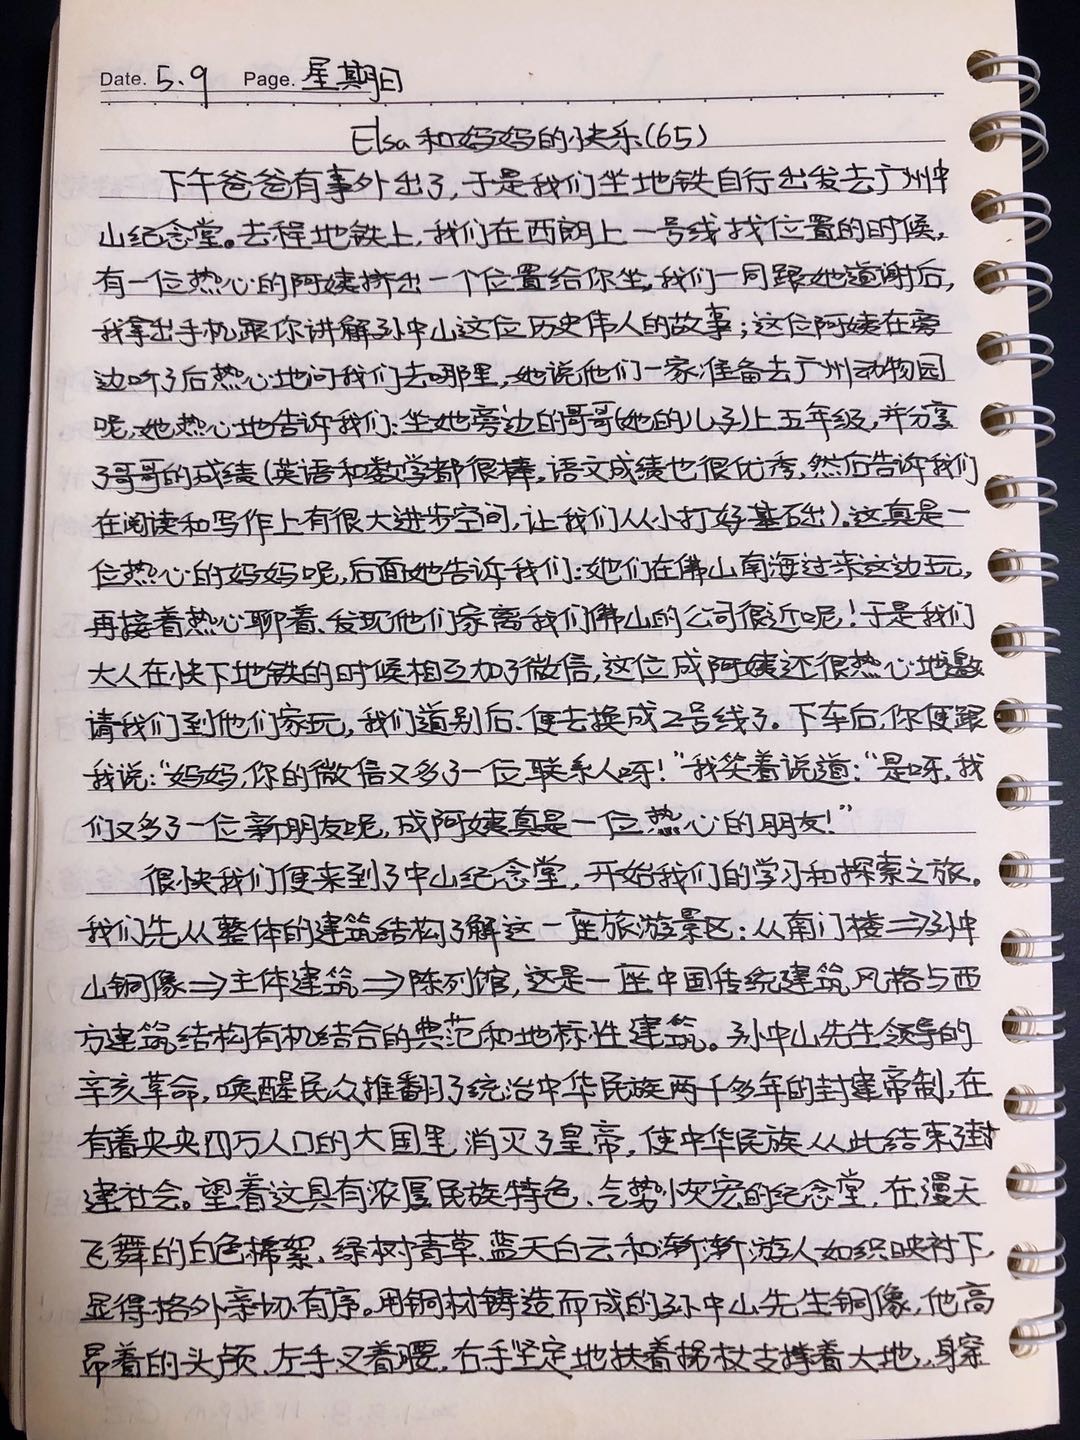 Date. 5.9 Page. 星期日
Elsa和妈妈的快乐(65)
下午爸爸有事外出了,于是我们坐地铁自行出发去广州中
山纪念堂。去程地铁上,我们在西朗上一号线找位置的时候,
有一位热心的阿姨挤出一个位置给你坐,我们一同跟她道谢后,
我拿出手机跟你讲解孙中山这位历史伟人的故事;这位阿姨在旁
边听了后热心地问我们去哪里,她说他们一家准备去广州动物园
呢,她热心地告诉我们:坐她旁边的哥哥(她的儿子)上五年级,并分享
了哥哥的成绩(英语和数学都很棒,语文成绩也很优秀,然后告诉我们
在阅读和写作上有很大进步空间,让我们从小打好基础)。这真是一
位热心的妈妈呢,后面她告诉我们:她们在佛山南海过来这边玩,
再接着热心聊着、发现他们家离我们佛山的公司很近呢!于是我们
大人在快下地铁的时候相互加了微信,这位成阿姨还很热心地邀
请我们到他们家玩,我们道别后、便去换成2号线了。下车后,你便跟
我说:“妈妈,你的微信又多了一位联系人呀!”我笑着说道:“是呀,我
们又多了一位新朋友呢,成阿姨真是一位热心的朋友!”
很快我们便来到了中山纪念堂,开始我们的学习和探索之旅。
我们先从整体的建筑结构了解这一座旅游景区:从南门楼⇒孙中
山铜像⇒主体建筑⇒陈列馆,这是一座中国传统建筑风格与西
方建筑结构有机结合的典范和地标性建筑。孙中山先生领导的
辛亥革命,唤醒民众推翻了统治中华民族两千多年的封建帝制,在
有着央央四万人口的大国里,消灭了皇帝,使中华民族从此结束了封
建社会。望着这具有浓厚民族特色、气势恢宏的纪念堂,在漫天
飞舞的白色棉絮、绿树青草、蓝天白云和渐渐游人如织映衬下,
显得格外亲切有序。用铜材铸造而成的孙中山先生铜像,他高
昂着的头颅、左手叉着腰,右手坚定地扶着拐杖支撑着大地,身穿